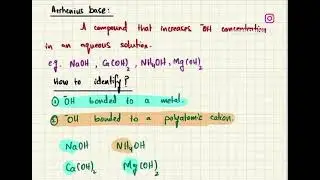 Arrhenius base:
A compound that increases ⁻OH concentration
in an aqueous solution.
eg. NaOH, Ca(OH)₂, NH₄OH, Mg(OH)₂
How to identify?
① ⁻OH bonded to a metal.
② ⁻OH bonded to a polyatomic cation.
NaOH NH₄OH
Ca(OH)₂ Mg(OH)₂